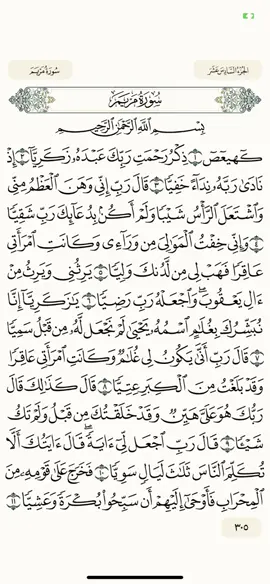 الجزء السادس عشر
سورة مريم
سورة مريم
بسم الله الرحمن الرحيم
كهيعص ١ ذكر رحمت ربك عبده زكريا ٢ إذ
نادى ربه نداء خفيا ٣ قال رب إني وهن العظم مني
واشتعل الرأس شيبا ولم أكن بدعائك رب شقيا
٤ وإني خفت الموالي من وراءي وكانت امرأتي
عاقرا فهب لي من لدنك وليا ٥ يرثني ويرث من
ءال يعقوب واجعله رب رضيا ٦ يزكريا إنا
نبشرك بغلم اسمه يحيى لم نجعل له من قبل سميا
٧ قال رب أنى يكون لي غلم وكانت امرأتي عاقرا
وقد بلغت من الكبر عتيا ٨ قال كذلك قال
ربك هو علي هين وقد خلقتك من قبل ولم تك
شيئا ٩ قال رب اجعل لي ءاية قال ءايتك ألا
تكلم الناس ثلث ليال سويا ١٠ فخرج على قومه من
المحراب فأوحى إليهم أن سبحوا بكرة وعشيا ١١
٣٠٥